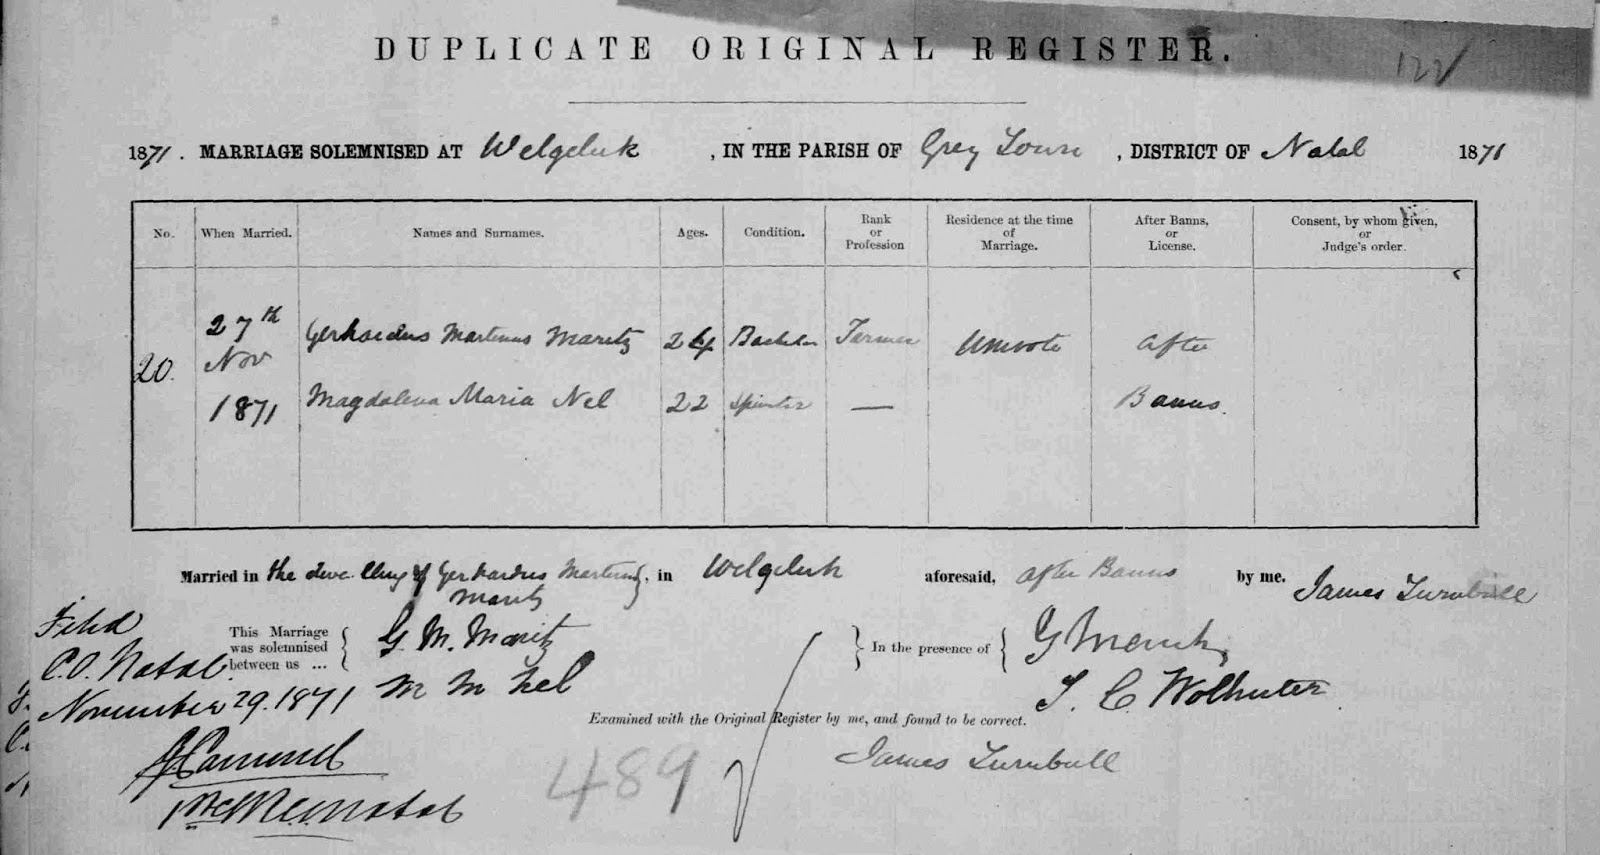 DUPLICATE ORIGINAL REGISTER.
122
1871. MARRIAGE SOLEMNISED AT Welgeluk, IN THE PARISH OF Grey Town, DISTRICT OF Natal 1871
No. When Married. Names and Surnames. Ages. Condition. Rank or Profession Residence at the time of Marriage. After Banns, or License. Consent, by whom given, or Judge's order.
20. 27th Nov 1871
Gerhardus Martinus Maritz 24 Bachelor Farmer Umvote After
Magdalena Maria Nel 22 Spinster — Banns.
Married in the dwelling of Gerhardus Martinus Maritz, in Welgeluk aforesaid, after Banns by me. James Turnbull
This Marriage was solemnised between us ... { G. M. Maritz
M M Nel
} In the presence of {
T. C. Wolhuter
Filed
C.O. Natal.
November 29. 1871
Examined with the Original Register by me, and found to be correct.
James Turnbull
489
Natal